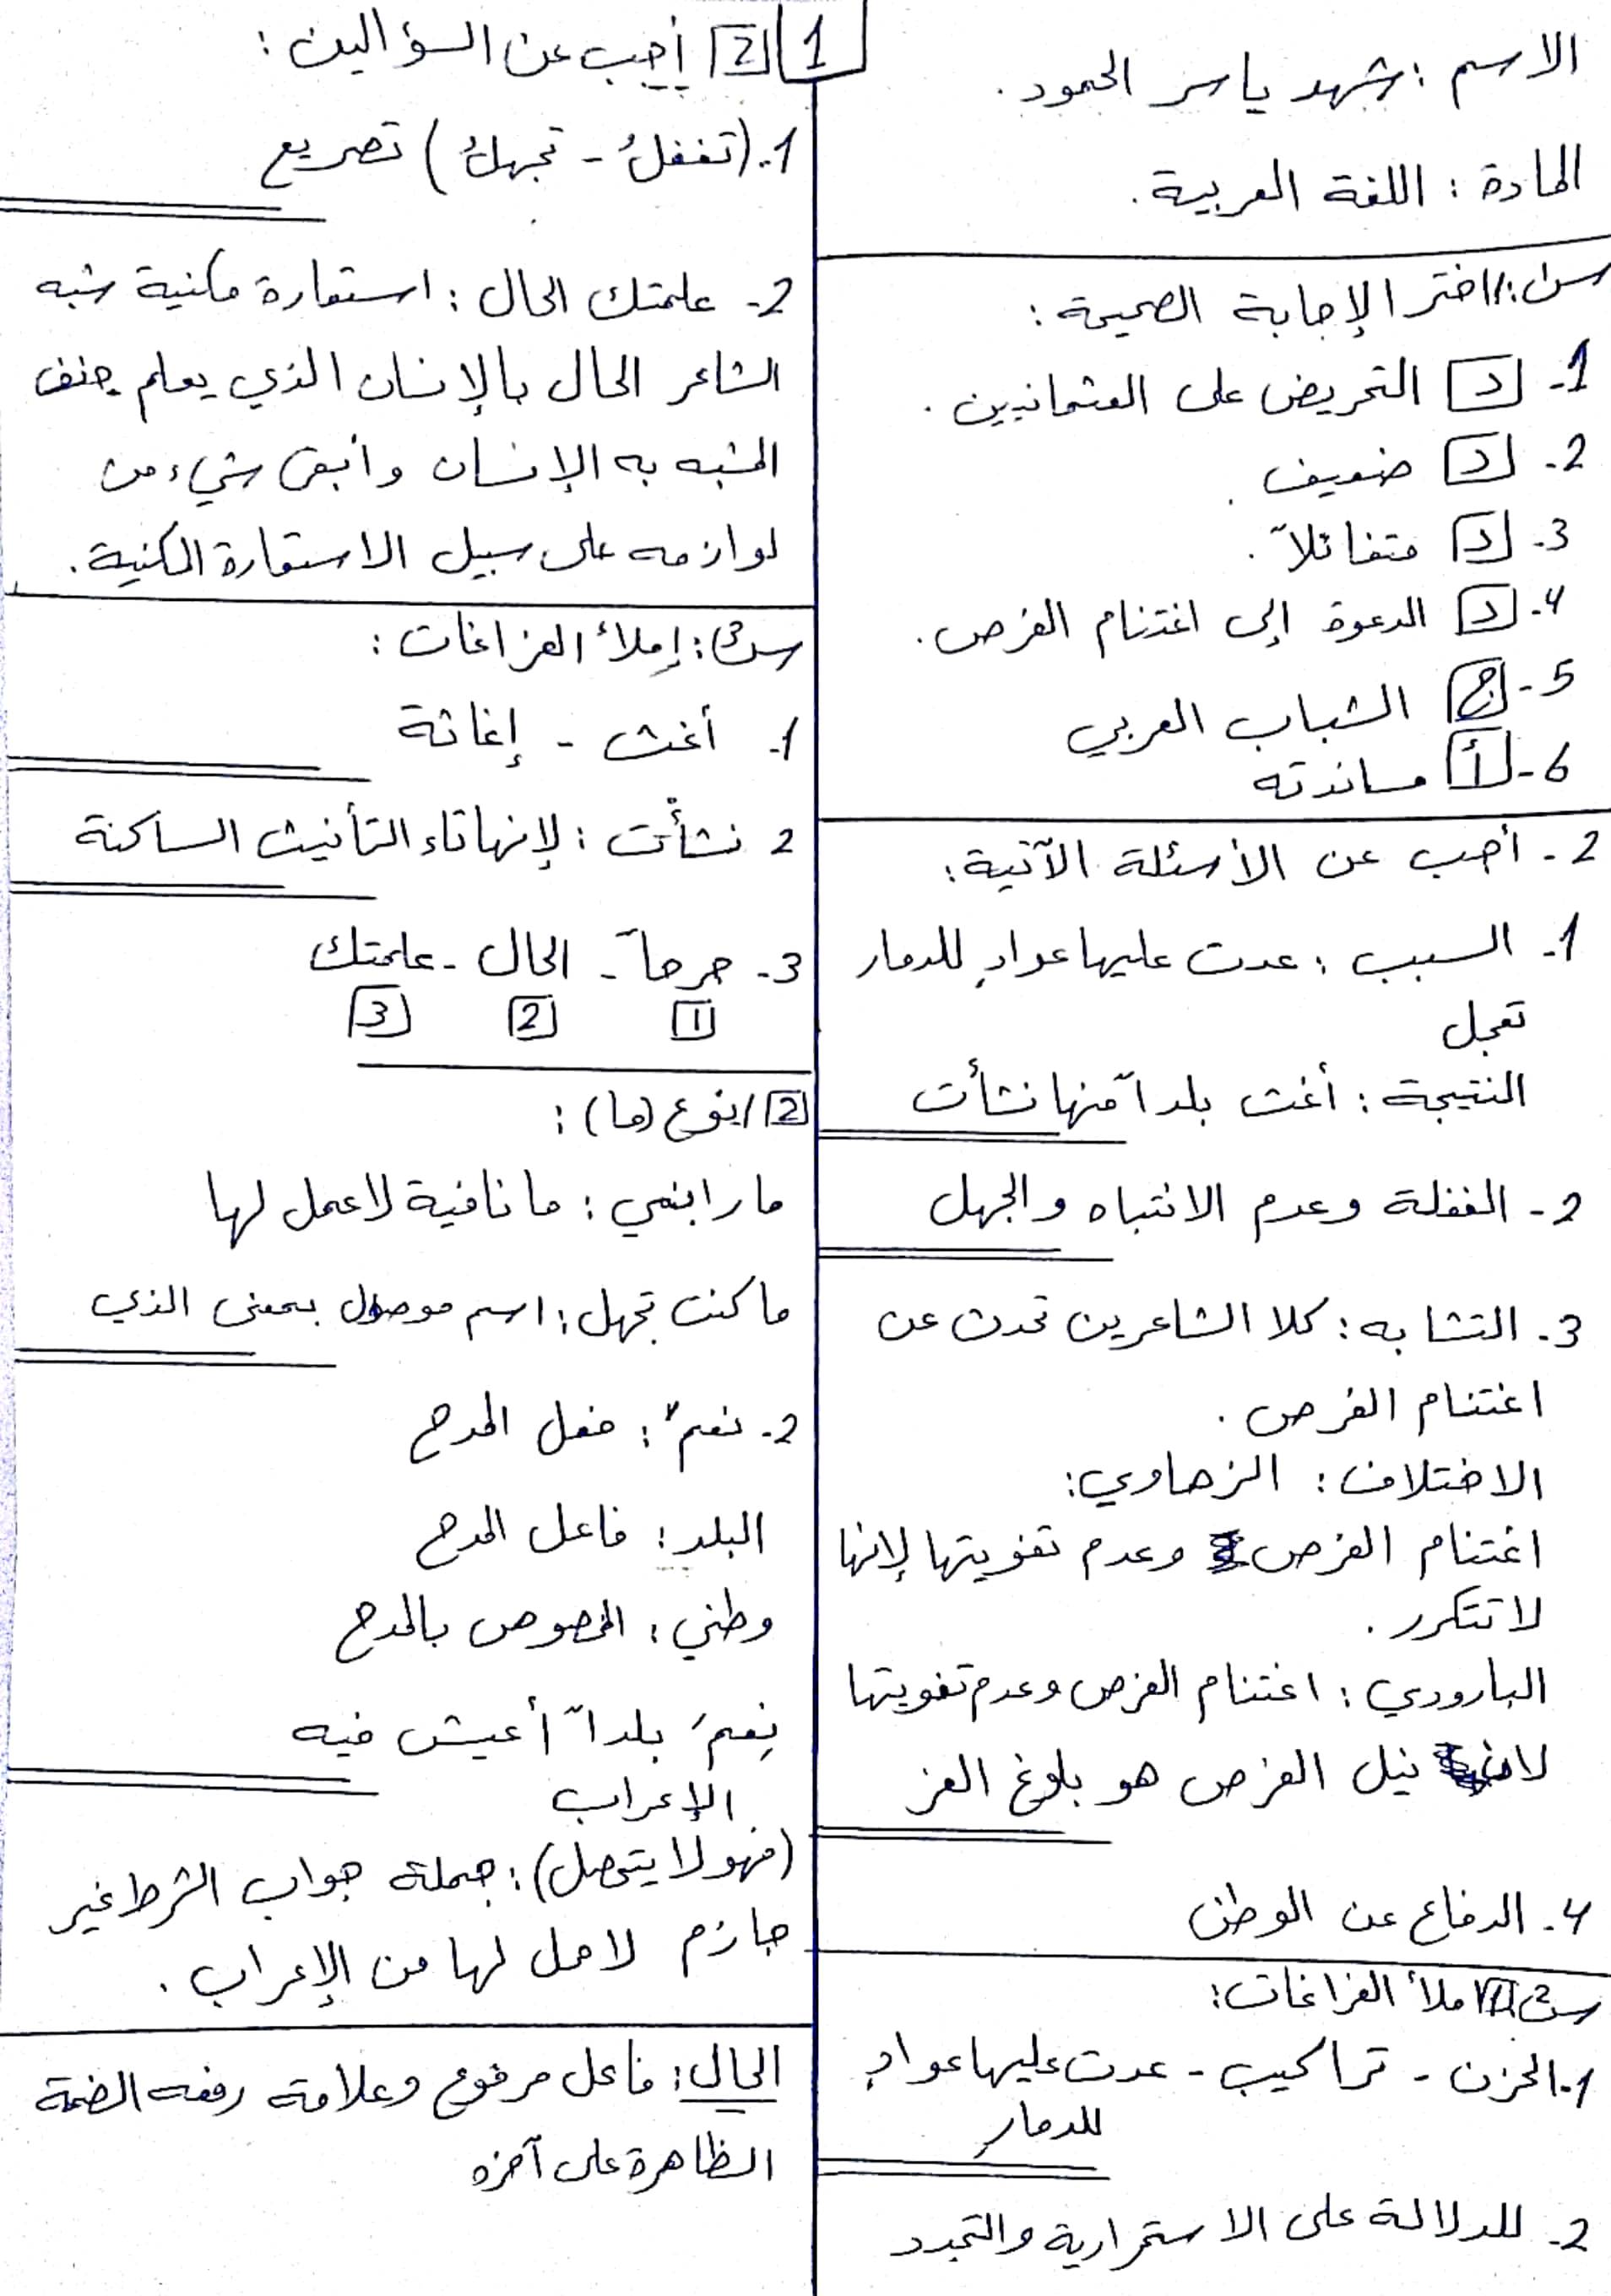 الاسم : شهد ياسر الحمود .
المادة : اللغة العربية .
س1: اختر الإجابة الصحيحة :
1- د التحريض على العثمانيين .
2- د ضعيف .
3- د متفائلاً .
4- د الدعوة إلى اغتنام الفرص .
5- ج الشباب العربي
6- أ مساندته
2- أجب عن الأسئلة الآتية :
1- السبب : عدت عليها عوادٍ للدمار
تعجل
النتيجة : أغث بلداً منها نشأت
2- الغفلة وعدم الانتباه والجهل
3- التشابه : كلا الشاعرين تحدث عن
اغتنام الفرص .
الاختلاف : الزهاوي :
اغتنام الفرص وعدم تفويتها لإنها
لا تتكرر .
البارودي : اغتنام الفرص وعدم تفويتها
لان نيل الفرص هو بلوغ العز
4- الدفاع عن الوطن
س2 1 املأ الفراغات :
1- الحزن - تراكيب - عدت عليها عوادٍ
للدمار
2- للدلالة على الاستمرارية والتجدد
1
2 أجب عن السؤالين :
1- (تغفلُ - تجهلُ) تصريع
2- علمتك الحال : استعارة مكنية شبه
الشاعر الحال بالإنسان الذي يعلم حذف
المشبه به الإنسان وأبقى شيء من
لوازمه على سبيل الاستعارة المكنية .
س3: إملأ الفراغات :
1- أغث - إغاثة
2 نشأتْ : لإنها تاء التأنيث الساكنة
3- جرحاً - الحال - علمتك
1 2 3
2/ نوع (ما) :
ما رابني : ما نافية لا عمل لها
ما كنت تجهل : اسم موصول بمعنى الذي
2- نعمَ : فعل المدح
البلد : فاعل المدح
وطني : المخصوص بالمدح
نِعمَ بلداً أعيش فيه
الإعراب
(فهو لا يتمهل) : جملة جواب الشرط غير
جازم لا محل لها من الإعراب .
الحال : فاعل مرفوع وعلامة رفعه الضمة
الظاهرة على آخره